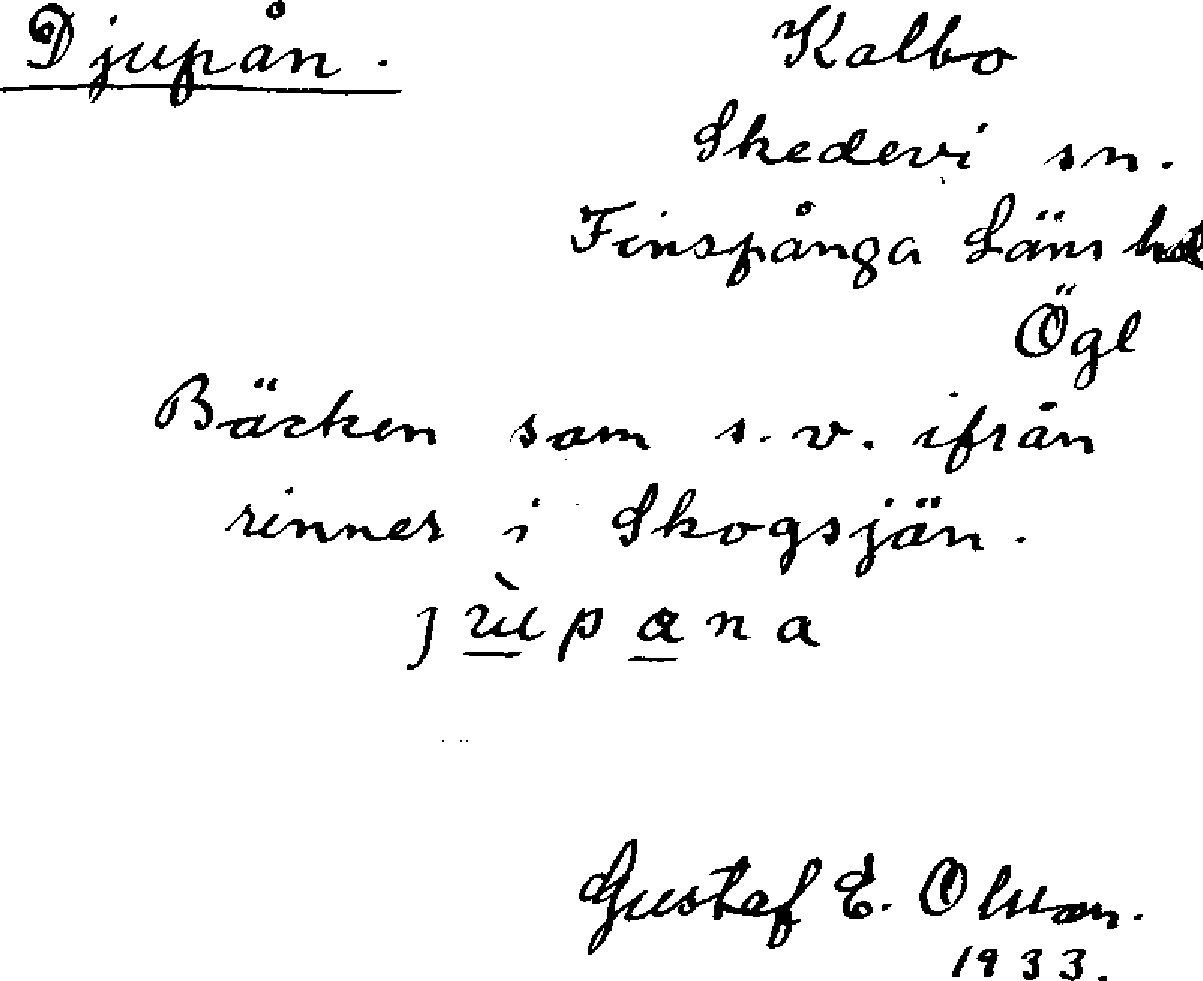 Djupån.
Kalbo
Skedevi sn.
Finspånga Läns hd
Ögl
Bäcken som s.v. ifrån
rinner i Skogsjän.
jùpana
Gustaf E. Olsson.
1933.